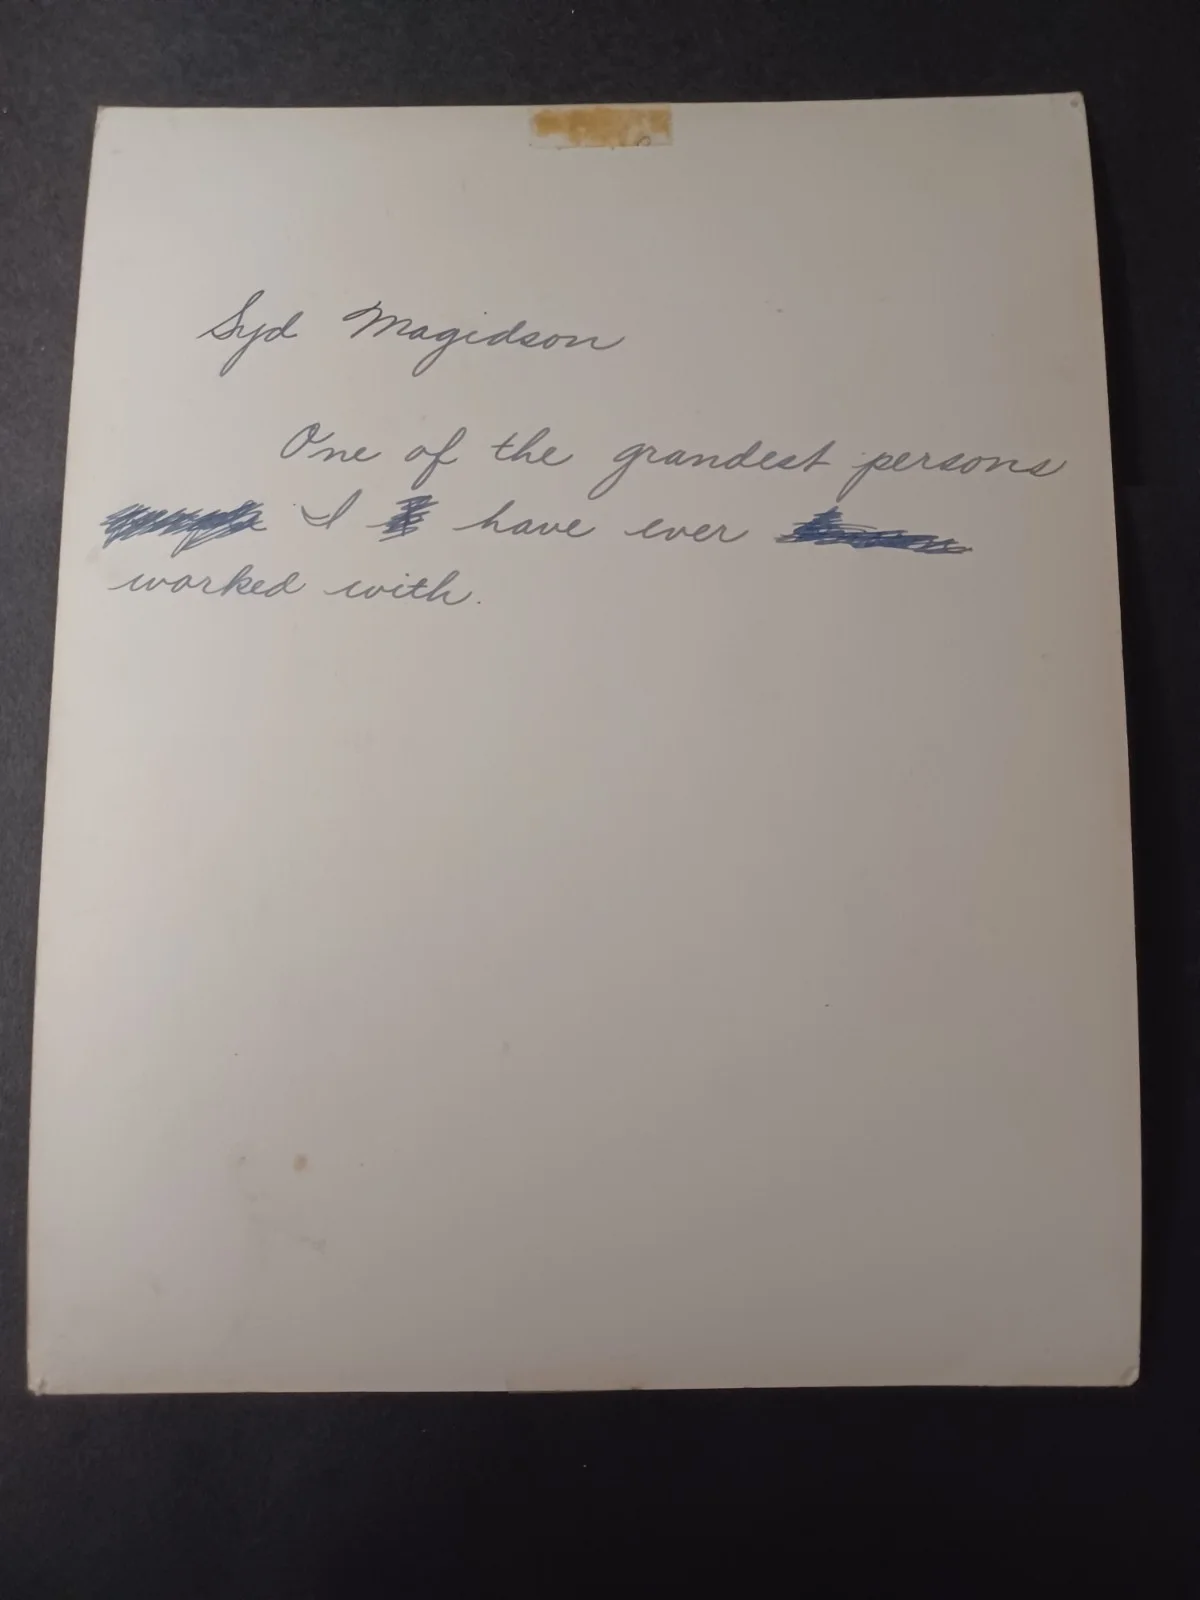 Syd Magidson
One of the grandest persons
I have ever
worked with.